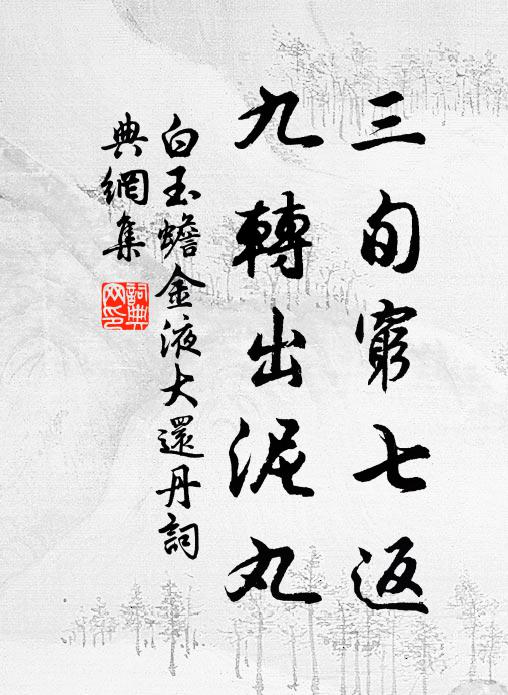 三旬窮七返
九轉出泥丸
白玉蟾金液大還丹詞
典網集
詞典网印